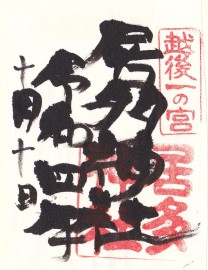 越後一の宮
居多神社
令和四年
十月十日
居多神社